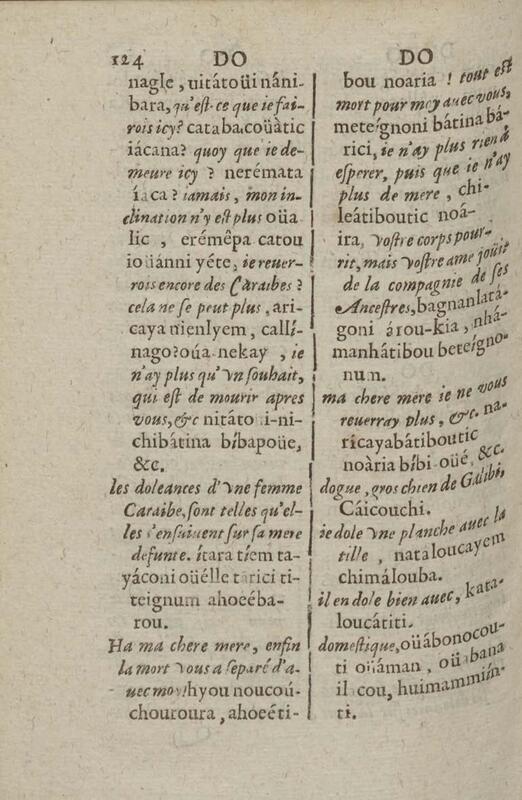 124 DO
nagle, uitátoüi náni-
bara, qu'est-ce que ie fai-
rois icy? cataba.coüàtic
iácana? quoy que ie de-
meure icy ? nerémata
íaca? iamais, mon in-
clination n'y est plus oüa
lic , erémêpa catou
ioüánni yéte, ie reuer-
rois encore des Caraibes ?
cela ne se peut plus, ari-
caya nienlyem, callí-
nago? oúa nekay , ie
n'ay plus qu'vn souhait,
qui est de mourir apres
vous, &c nitáto i-ni-
chibátina bíbapoüe,
&c.
les doleances d'vne femme
Caraibe, sont telles qu'el-
les s'ensuiuent sur sa mere
defunte. ítara tíem ta-
yáconi oüélle tarici ti-
teignum ahoeéba-
rou.
Ha ma chere mere, enfin
la mort vous a separé d'a-
uec moy! hyou noucoú-
chouroura, ahoeéti-
DO
bou noaria ! tout est
mort pour moy auec vous,
meteígnoni bátina bá-
rici, ie n'ay plus rien à
esperer, puis que ie n'ay
plus de mere, chi-
leátiboutic noá-
ira, vostre corps pour-
rit, mais vostre ame joüit
de la compagnie de ses
Ancestres, bagnanlatá-
goni árou-kia, nhá-
manhátibou beteígno-
num.
ma chere mere ie ne vous
reuerray plus, &c. na-
ricayabátiboutic
noària bíbi-oüé, &c.
dogue, gros chien de Galibi,
Cáicouchi.
ie dole vne planche auec la
tille , nataloucayem
chimálouba.
il en dole bien auec, kata-
loucátiti.
domestique, oüábonocou-
ti oüáman, oüabana
il cou, huimammiín-
ti.